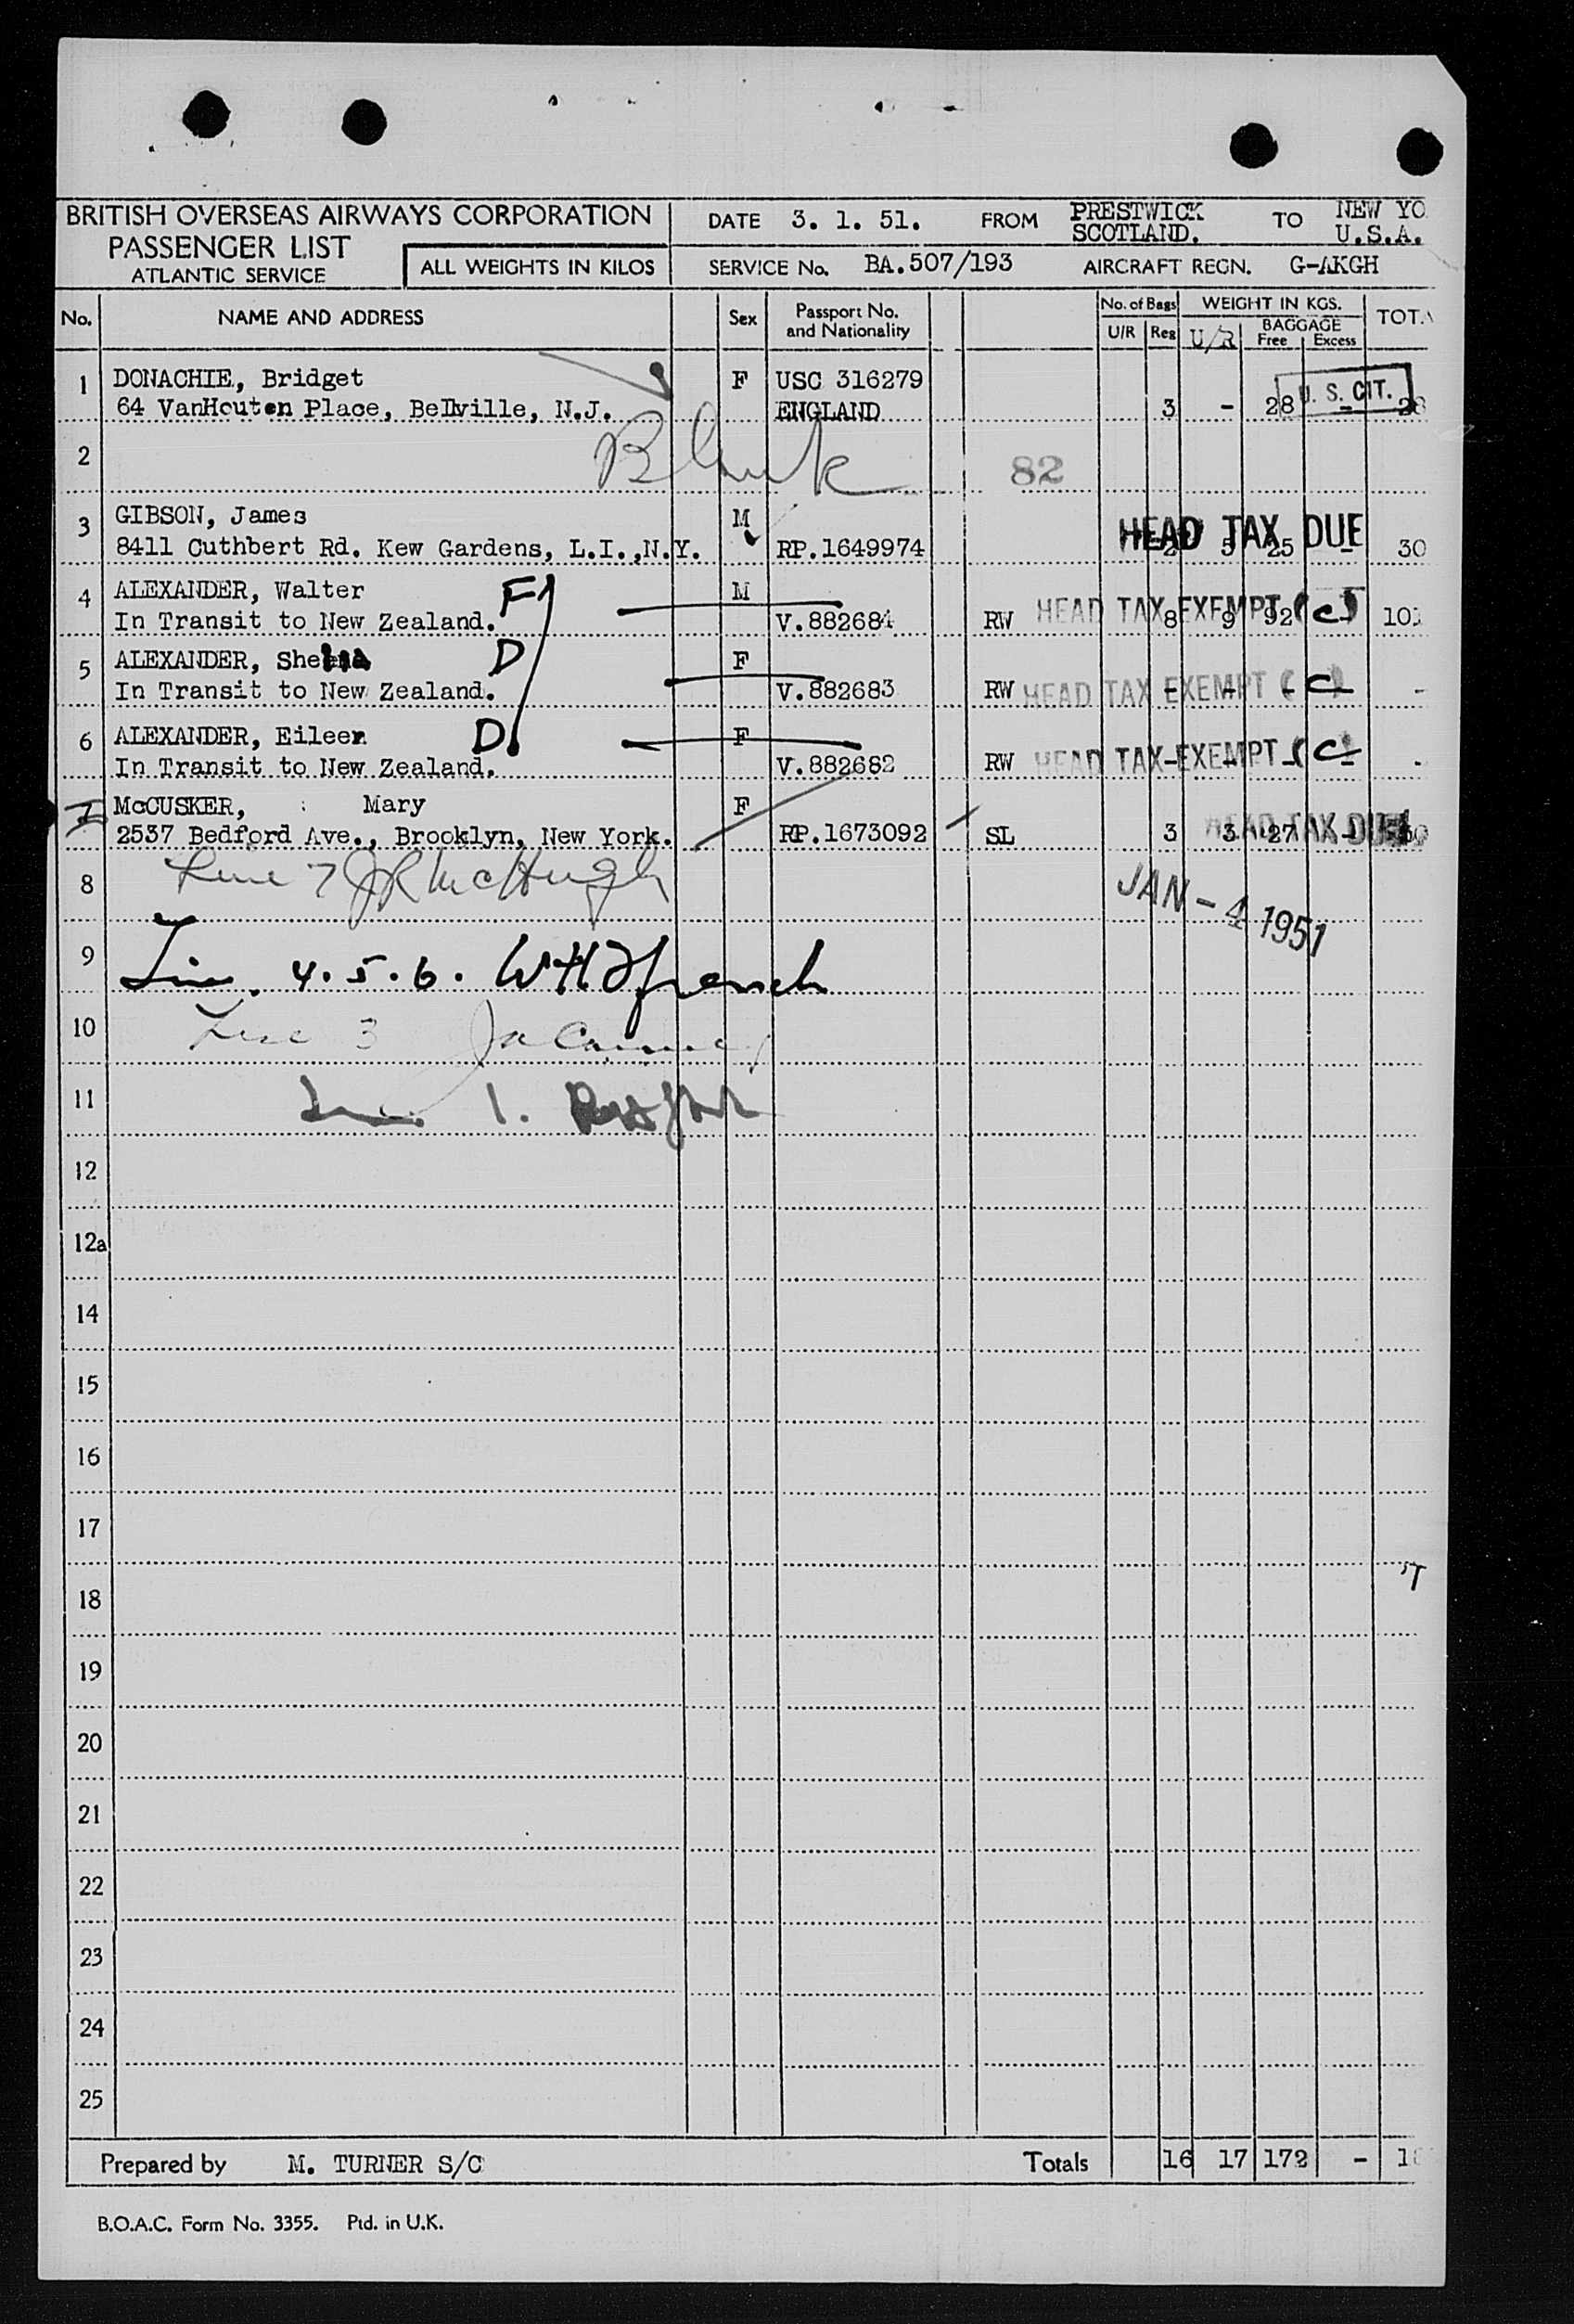 BRITISH OVERSEAS AIRWAYS CORPORATION
PASSENGER LIST
ATLANTIC SERVICE
ALL WEIGHTS IN KILOS
DATE 3. 1. 51. FROM PRESTWICK SCOTLAND. TO NEW YO U.S.A.
SERVICE No. BA.507/193 AIRCRAFT REGN. G-AKGH
No. NAME AND ADDRESS Sex Passport No. and Nationality No. of Bags U/R Reg WEIGHT IN KGS. U/R BAGGAGE Free Excess TOTA
1 DONACHIE, Bridget F USC 316279 U. S. CIT.
64 VanHouten Place, Bellville, N.J. ENGLAND 3 - 28 - 28
2 Blank 82
3 GIBSON, James M HEAD TAX DUE
8411 Cuthbert Rd. Kew Gardens, L.I.,N.Y. RP.1649974 2 5 25 - 30
4 ALEXANDER, Walter F M
In Transit to New Zealand. V.882684 RW HEAD TAX EXEMPT (c) 8 9 92 - 101
5 ALEXANDER, D F
In Transit to New Zealand. V.882683 RW HEAD TAX EXEMPT (c) - - - - -
6 ALEXANDER, Eileen D F
In Transit to New Zealand. V.882682 RW HEAD TAX EXEMPT (c) - - - - -
7 McCUSKER, Mary F
2537 Bedford Ave., Brooklyn, New York. RP.1673092 SL 3 3 27 - 30 HEAD TAX DUE
8 Line 7 JR McHugh JAN - 4 1951
9 Line. 4.5.6. WHD french
10 Line 3
11 Line 1.
12
12a
14
15
16
17
18
19
20
21
22
23
24
25
Prepared by M. TURNER S/C Totals 16 17 172 - 18
B.O.A.C. Form No. 3355. Ptd. in U.K.